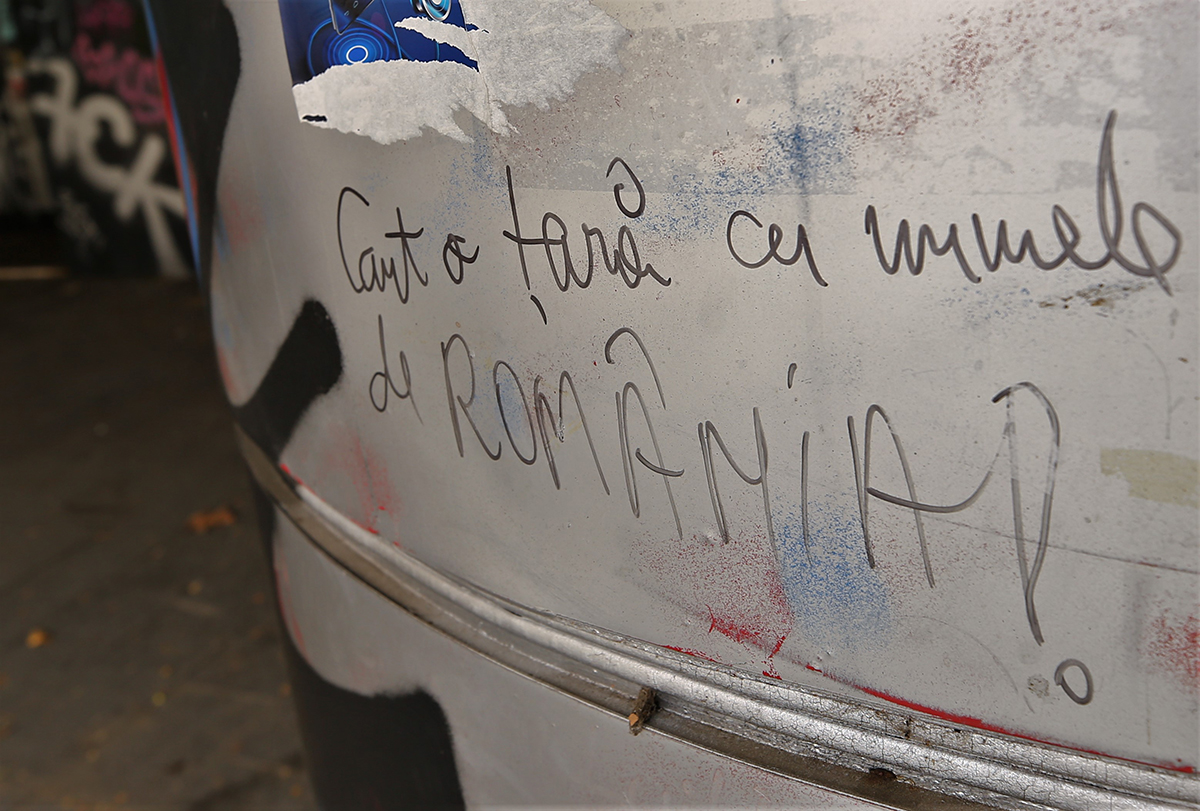 Caut o țară cu numele
de ROMÂNIA?